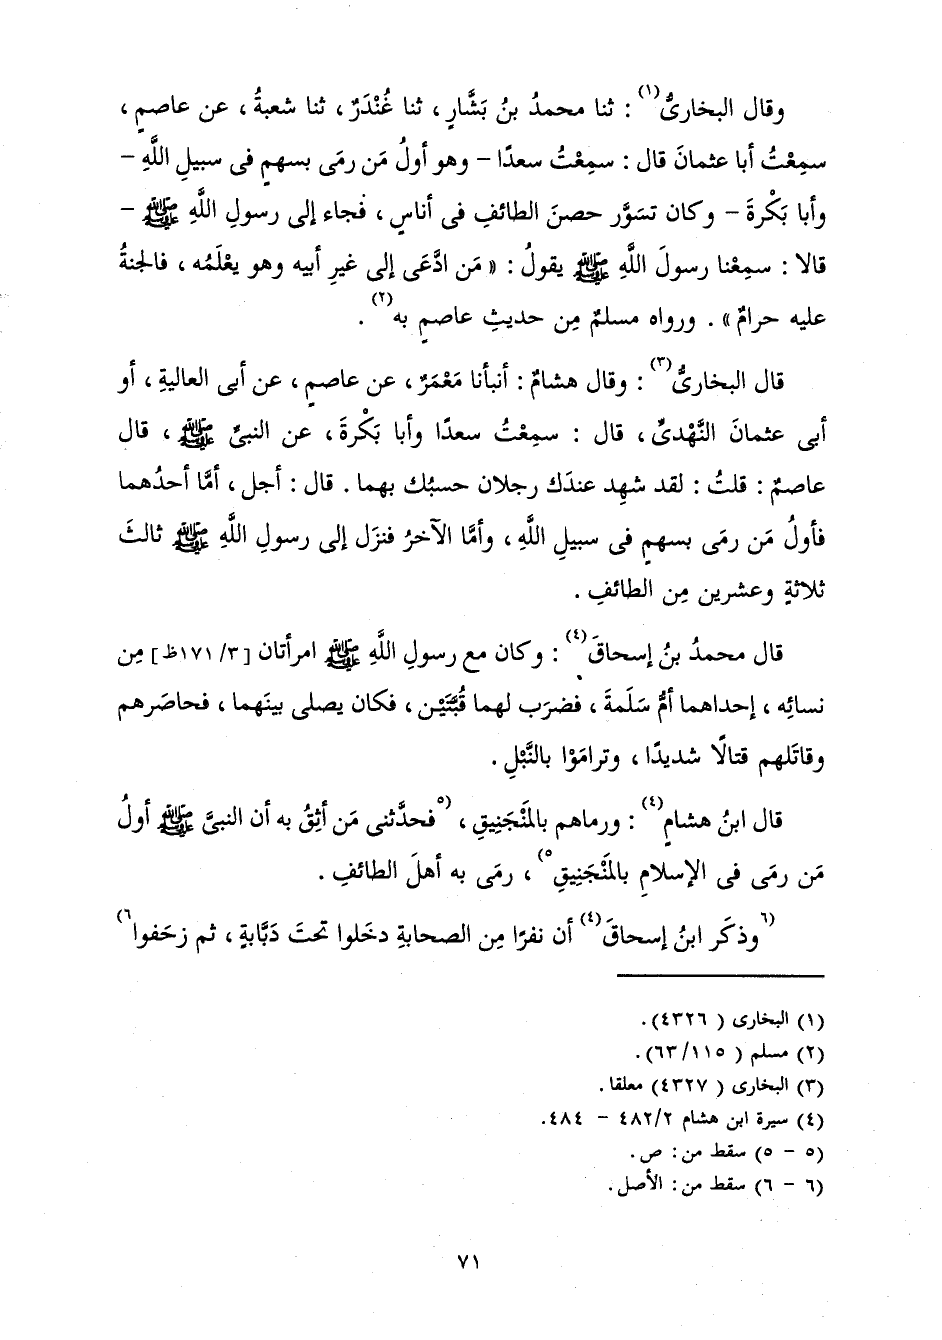 وقال البخارىُّ(١) : ثنا محمدُ بنُ بَشَّارٍ ، ثنا غُنْدَرٌ ، ثنا شعبةُ ، عن عاصمٍ ،
سمِعْتُ أبا عثمانَ قال : سمِعْتُ سعدًا – وهو أولُ مَن رمَى بسهمٍ فى سبيلِ اللَّهِ –
وأبا بَكْرةَ – وكان تسَوَّر حصنَ الطائفِ فى أناسٍ ، فجاء إلى رسولِ اللَّهِ ﷺ –
قالا : سمِعْنا رسولَ اللَّهِ ﷺ يقولُ : « مَن ادَّعَى إلى غيرِ أبيه وهو يعْلَمُه ، فالجنةُ
عليه حرامٌ » . ورواه مسلمٌ مِن حديثِ عاصمٍ به(٢) .
قال البخارىُّ(٣) : وقال هشامٌ : أنبأنا مَعْمَرٌ ، عن عاصمٍ ، عن أبى العاليةِ ، أو
أبى عثمانَ النَّهْدىِّ ، قال : سمِعْتُ سعدًا وأبا بَكْرةَ ، عن النبىِّ ﷺ ، قال
عاصمٌ : قلتُ : لقد شهِد عندَك رجلان حسبُك بهما . قال : أجل ، أمَّا أحدُهما
فأولُ مَن رمَى بسهمٍ فى سبيلِ اللَّهِ ، وأمَّا الآخرُ فنزَل إلى رسولِ اللَّهِ ﷺ ثالثَ
ثلاثةٍ وعشرين مِن الطائفِ .
قال محمدُ بنُ إسحاقَ(٤) : وكان مع رسولِ اللَّهِ ﷺ امرأتان [٣/ ١٧١ظ] مِن
نسائِه ، إحداهما أمُّ سَلَمةَ ، فضرَب لهما قُبَّتَيْن ، فكان يصلى بينَهما ، فحاصَرهم
وقاتَلهم قتالًا شديدًا ، وترامَوْا بالنَّبْلِ .
قال ابنُ هشامٍ(٤) : ورماهم بالمَنْجَنِيقِ ، (٥فحدَّثنى مَن أثِقُ به أن النبىَّ ﷺ أولُ
مَن رمى فى الإسلامِ بالمَنْجَنِيقِ٥) ، رمَى به أهلَ الطائفِ .
(٦وذكَر ابنُ إسحاقَ(٤) أن نفرًا مِن الصحابةِ دخَلوا تحتَ دَبَّابةٍ ، ثم زحَفوا٦)
(١) البخارى ( ٤٣٢٦).
(٢) مسلم ( ٦٣/١١٥).
(٣) البخارى ( ٤٣٢٧) معلقا .
(٤) سيرة ابن هشام ٤٨٢/٢ – ٤٨٤.
(٥ – ٥) سقط من : ص .
(٦ – ٦) سقط من : الأصل .
٧١